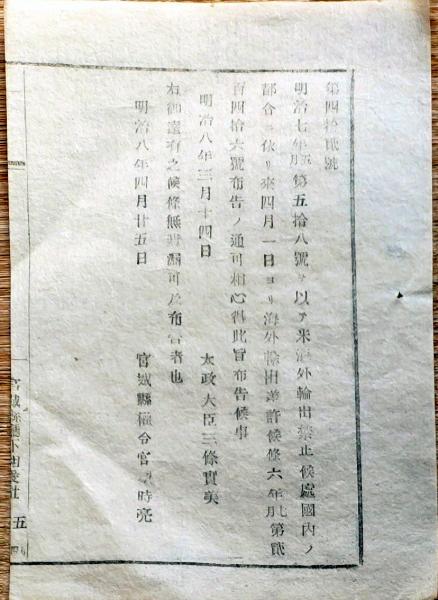 第四拾貳號
明治七年五月第五拾八號ヲ以テ米海外輸出禁止候處國内ノ
都合ニ依リ來四月一日ヨリ海外輸出差許候條六年七月第貳
百四拾六號布告ノ通可相心得此旨布告候事
明治八年三月十四日
太政大臣三條實美
右御達有之候條縣管内可及布告者也
明治八年四月廿五日
宮城縣權令宮城時亮
五